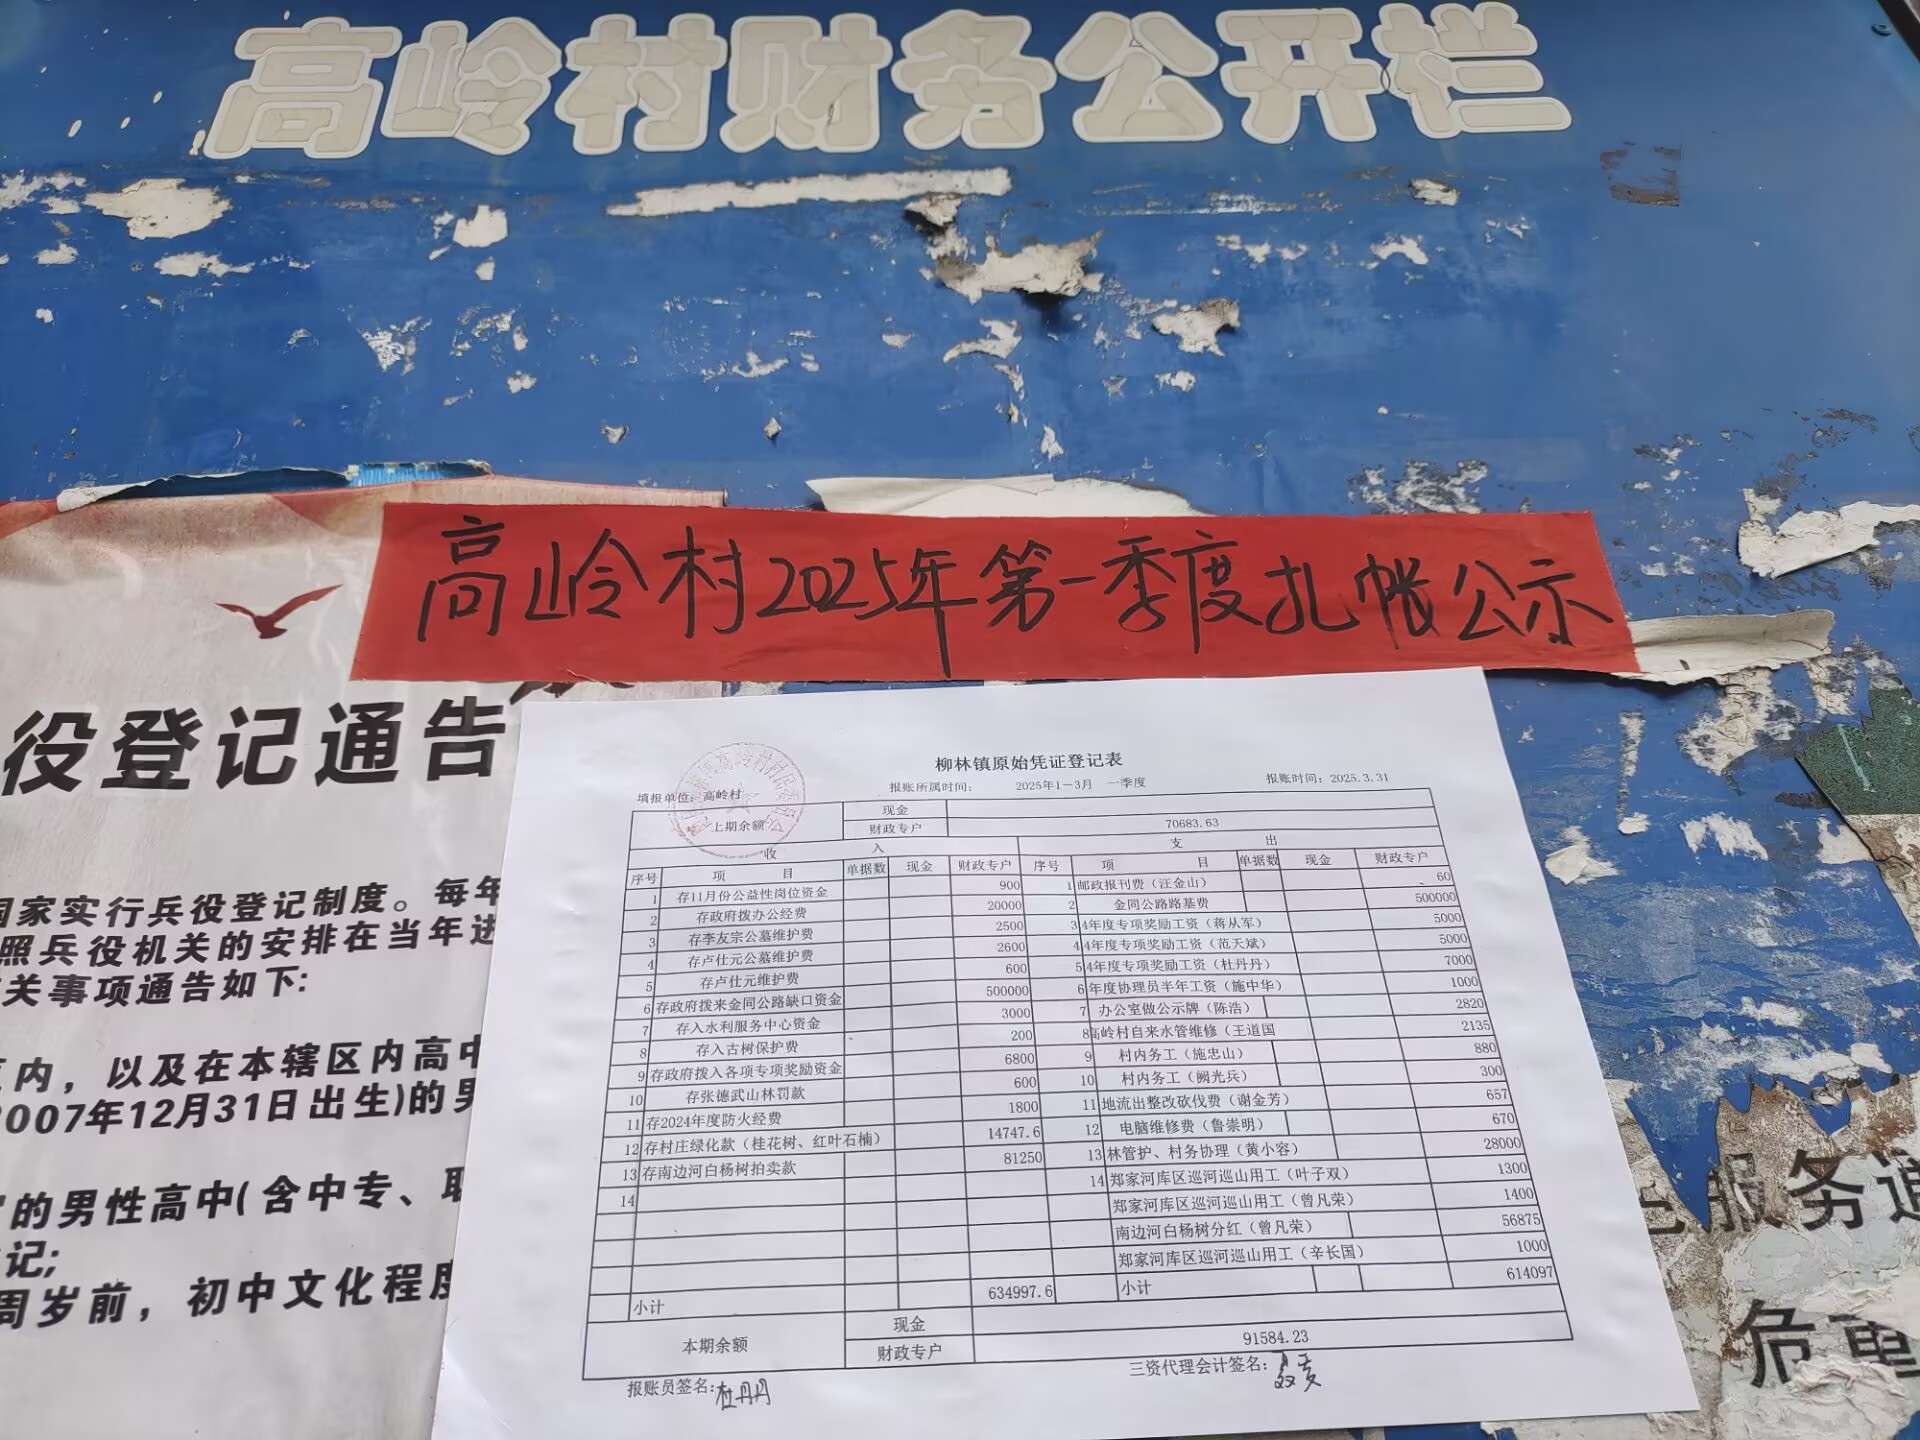 高岭村财务公开栏
高岭村2025年第一季度扎帐公示
役登记通告
国家实行兵役登记制度。每年
照兵役机关的安排在当年进
关事项通告如下:
内，以及在本辖区内高中
2007年12月31日出生)的男
的男性高中(含中专、职
记;
周岁前，初中文化程度
服务通
危重
柳林镇原始凭证登记表
填报单位：高岭村 报账所属时间： 2025年1－3月 一季度 报账时间：2025.3.31
上期余额 现金
财政专户 70683.63
收 入 支 出
序号 项 目 单据数 现金 财政专户 序号 项 目 单据数 现金 财政专户
1 存11月份公益性岗位资金 900 1 邮政报刊费（汪金山） 60
2 存政府拨办公经费 20000 2 金同公路路基费 500000
3 存李友宗公墓维护费 2500 3 4年度专项奖励工资（蒋从军） 5000
4 存卢仕元公墓维护费 2600 4 4年度专项奖励工资（范天斌） 5000
5 存卢仕元维护费 600 5 4年度专项奖励工资（杜丹丹） 7000
6 存政府拨来金同公路缺口资金 500000 6 年度协理员半年工资（施中华） 1000
7 存入水利服务中心资金 3000 7 办公室做公示牌（陈浩） 2820
8 存入古树保护费 200 8 高岭村自来水管维修（王道国 2135
9 存政府拨入各项专项奖励资金 6800 9 村内务工（施忠山） 880
10 存张德武山林罚款 600 10 村内务工（阙光兵） 300
11 存2024年度防火经费 1800 11 地流出整改砍伐费（谢金芳） 657
12 存村庄绿化款（桂花树、红叶石楠） 14747.6 12 电脑维修费（鲁崇明） 670
13 存南边河白杨树拍卖款 81250 13 林管护、村务协理（黄小容） 28000
14 14 郑家河库区巡河巡山用工（叶子双） 1300
郑家河库区巡河巡山用工（曾凡荣） 1400
南边河白杨树分红（曾凡荣） 56875
郑家河库区巡河巡山用工（辛长国） 1000
小计 634997.6 小计 614097
本期余额 现金
财政专户 91584.23
报账员签名：杜丹丹 三资代理会计签名：